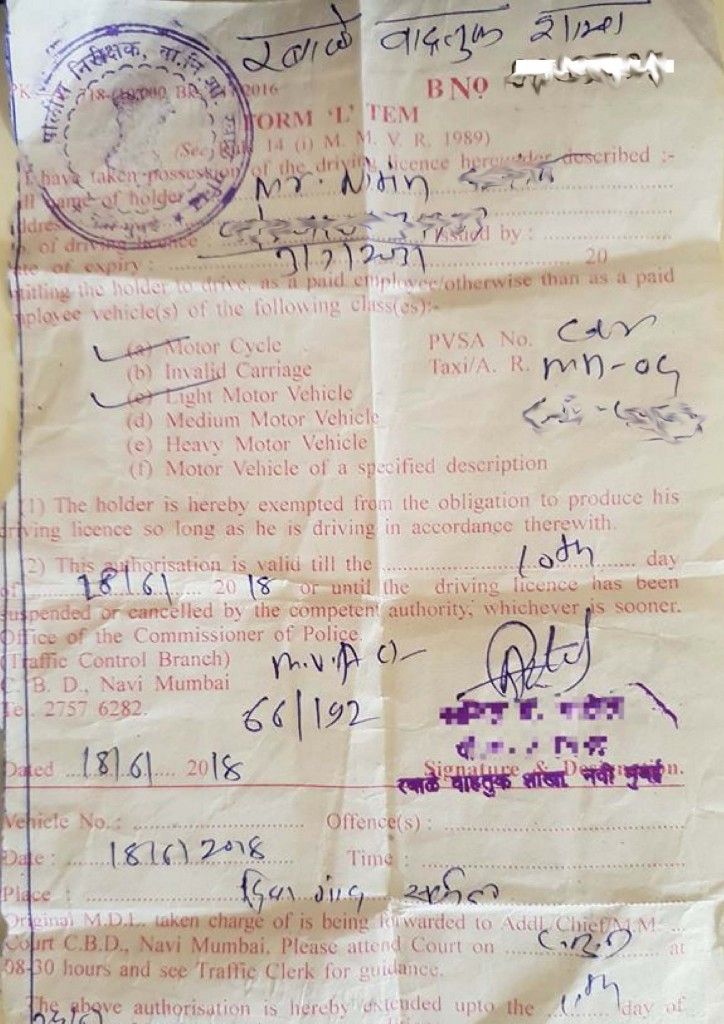 रबाळे वाहतुक शाखा
पोलीस निरीक्षक, वा.नि.शा.
2016
B No
FORM 'L' TEM
(See Rule 14 (i) M. M. V. R. 1989)
I have taken possession of the driving licence hereunder described :-
name of holder Mr. Nitin
of driving licence Issued by :
of expiry : 20
the holder to drive, as a paid employee/otherwise than as a paid
vehicle(s) of the following class(es):-
(a) Motor Cycle
PVSA No. Car
(b) Invalid Carriage
Taxi/A. R. MH-04
(c) Light Motor Vehicle
(d) Medium Motor Vehicle
(e) Heavy Motor Vehicle
(f) Motor Vehicle of a specified description
(1) The holder is hereby exempted from the obligation to produce his
driving licence so long as he is driving in accordance therewith.
(2) This authorisation is valid till the 10th day
of 18/6/ 2018 or until the driving licence has been
suspended or cancelled by the competent authority, whichever is sooner.
Office of the Commissioner of Police.
(Traffic Control Branch)
M.V.A
C. B. D., Navi Mumbai
Tel. 2757 6282.
66/192
Dated 18/6/ 2018
Signature & Designation.
रबाळे वाहतुक शाखा, नवी मुंबई
Vehicle No.: Offence(s) :
Date : 18/6/2018 Time :
Place : दिवा गांव सर्कल
Original M.D.L. taken charge of is being forwarded to Addl. Chief/M.M.
Court C.B.D., Navi Mumbai. Please attend Court on C.B.D at
08-30 hours and see Traffic Clerk for guidance.
The above authorisation is hereby extended upto the day of